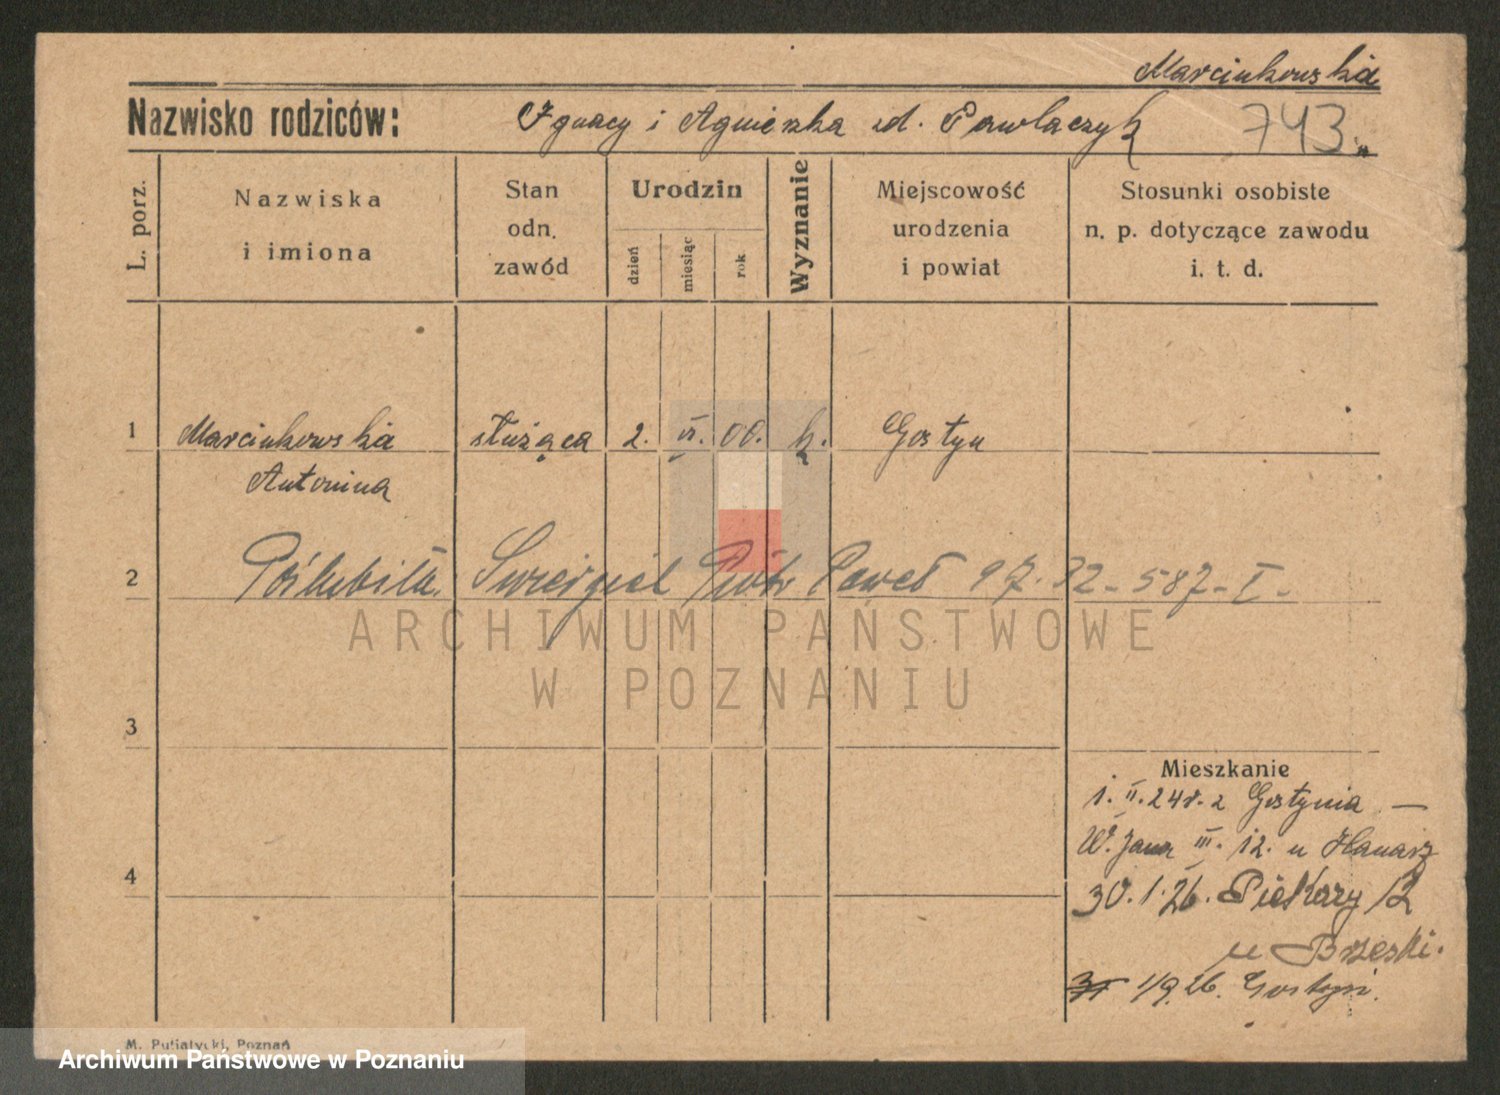 Marcinkowska
Nazwisko rodziców: Ignacy i Agnieszka zd. Pawlaczyk 743
L. porz.
Nazwiska
i imiona
Stan
odn.
zawód
Urodzin
dzień
miesiąc
rok
Wyznanie
Miejscowość
urodzenia
i powiat
Stosunki osobiste
n. p. dotyczące zawodu
i. t. d.
1 Marcinkowska służąca 2. VI. 00. k. Gostyn
Antonina
2 Poślubiła Piotr Paweł 97. 32-587-I-
ARCHIWUM PAŃSTWOWE
W POZNANIU
3
Mieszkanie
1. II. 24 r. z Gostynia —
W. Jana III. 12. u
4
30. 1. 26. Piekary 12
u Brzeski.
1/9. 26. Gostyń.
M. Putiatycki, Poznań
Archiwum Państwowe w Poznaniu